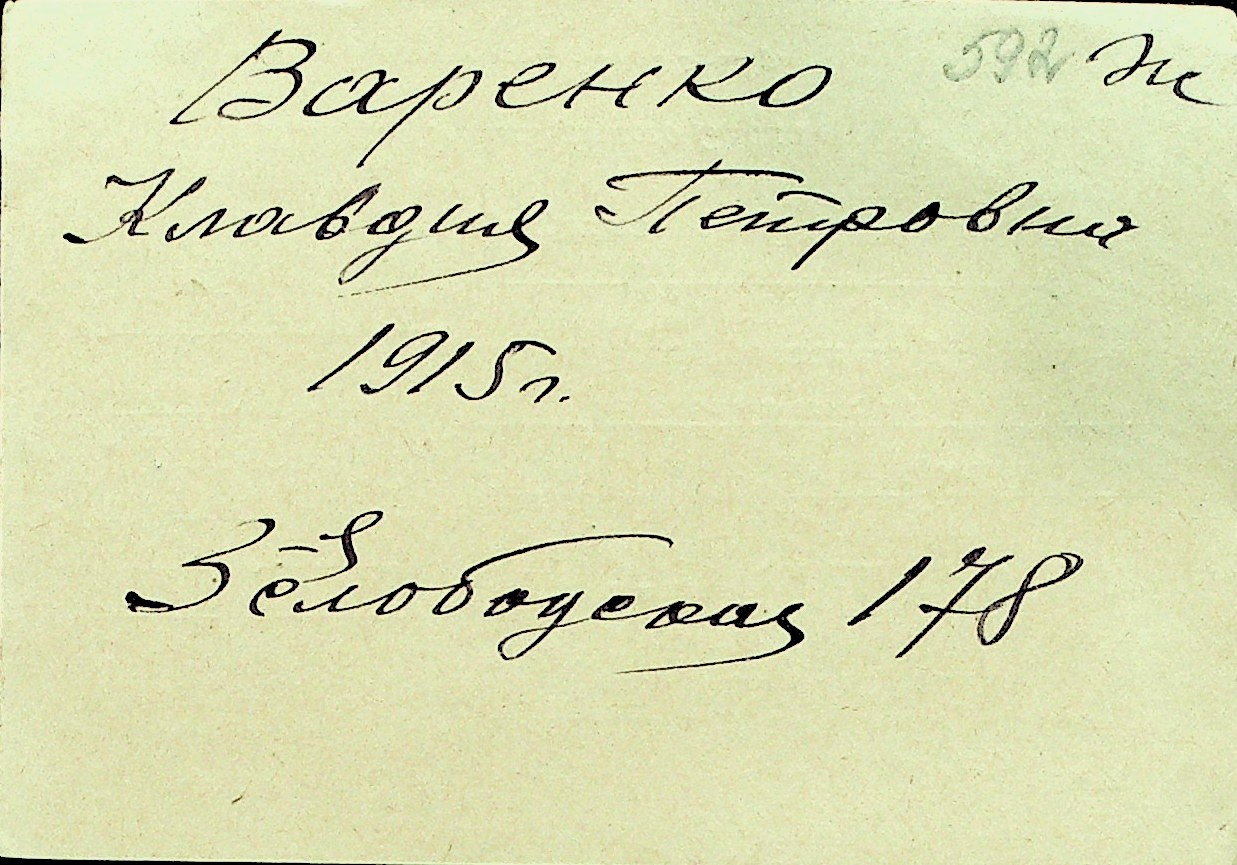 Варенко 592 Ж
Клавдия Петровна
1915 г.
3я Слободская 178